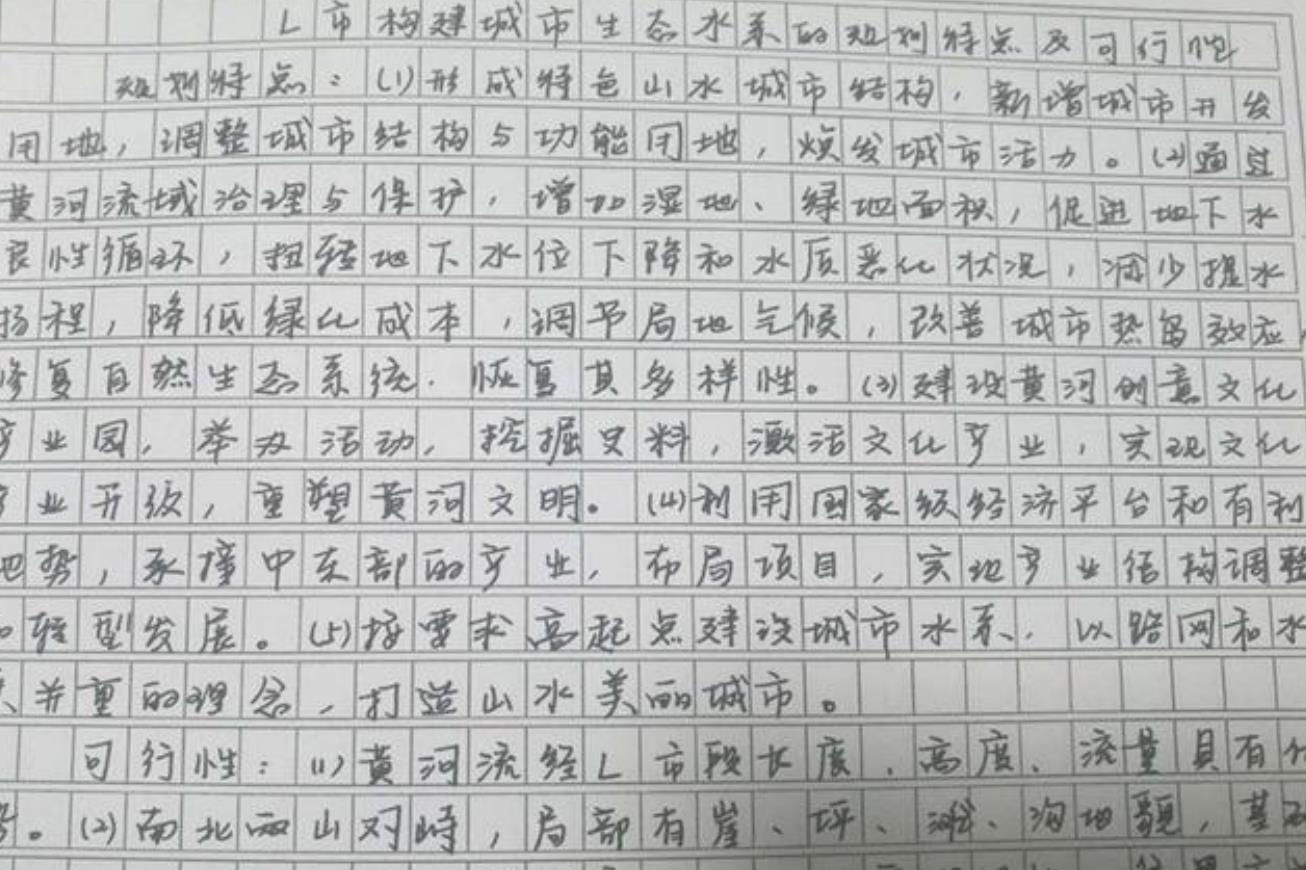 L市构建城市生态水系的规划特点及可行性
规划特点:(1)形成特色山水城市结构,新增城市开发
用地,调整城市结构与功能用地,焕发城市活力。(2)通过
黄河流域治理与保护,增加湿地、绿地面积,促进地下水
良性循环,扭转地下水位下降和水质恶化状况,减少提水
扬程,降低绿化成本,调节局地气候,改善城市热岛效应,
修复自然生态系统,恢复其多样性。(3)建设黄河创意文化
产业园,举办活动,挖掘史料,激活文化产业,实现文化
产业升级,重塑黄河文明。(4)利用国家级经济平台和有利
地势,承接中东部的产业,布局项目,实地产业结构调整
和转型发展。(5)按要求高起点建设城市水系,以路网和水
并重的理念,打造山水美丽城市。
可行性:(1)黄河流经L市段长度、高度、流量具有
。(2)南北两山对峙,局部有崖、坪、滩、沟地貌,基